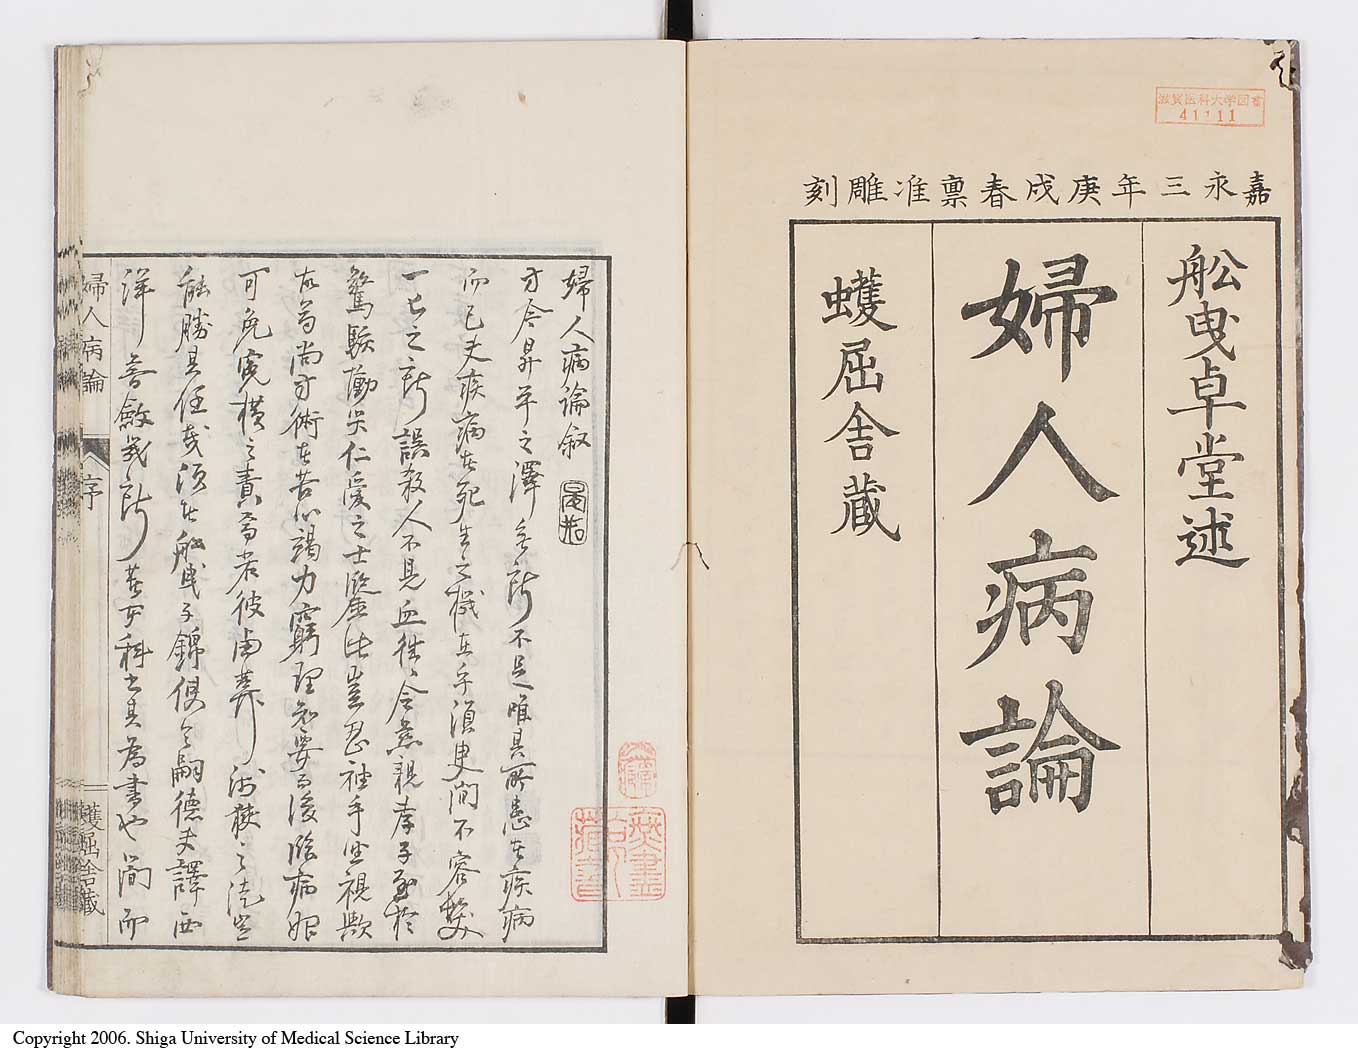 滋賀医科大学図書
41111
嘉永三年庚戌春稟准雕刻
舩曳卓堂述
婦人病論
蠖屈舎蔵
婦人病論叙
方今昇平之澤無所不足唯其所患在疾病
而已夫疾病在死生之機在乎須臾間不容髮
一匕之所誤殺人不見血徃〻令慈親孝子至於
驚駭慟哭仁愛之士臨此豈忍袖手坐視歟
故為尚方術在苦心竭力窮理知要而後臨病始
可免寃横之責焉若彼鹵莽
能勝其任哉須在舩曳子錦使令嗣德夫譯西
洋
科書其為書也簡而
婦人病論
序
蠖屈舎蔵
Copyright 2006. Shiga University of Medical Science Library